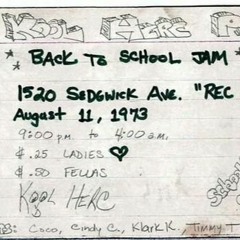 KOOL HERC P
BACK TO SCHOOL JAM
1520 SEDGWICK AVE. "REC
August 11, 1973
9:00 p.m. to 4:00 a.m.
$ .25 LADIES ♥
$ .50 FELLAS
KOOL HERC
Coco, Cindy C., Klark K. Timmy T